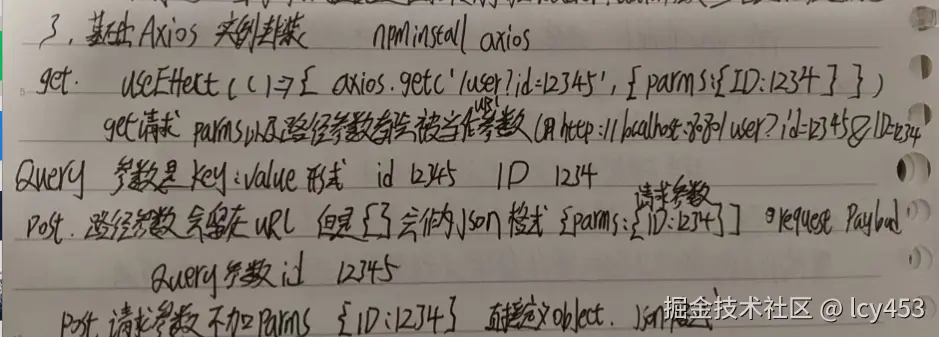 3. 基础Axios 实例封装 npm install axios
get. useEffect(()=>{ axios.get('/user?id=12345', { parms:{ID:1234} })
get请求 parms以及路径参数都会被当作URL参数(用http://localhost:8080/user?id=12345&ID=1234
Query 参数是key:value 形式 id 12345 ID 1234
请求参数
Post. 路径参数会留在URL 但是{ }会作为Json格式 {parms:{ID:1234}} request Payload
Query参数 id 12345
Post 请求参数不加parms {ID:1234} 直接定义object. Json格式
掘金技术社区 @ lcy453